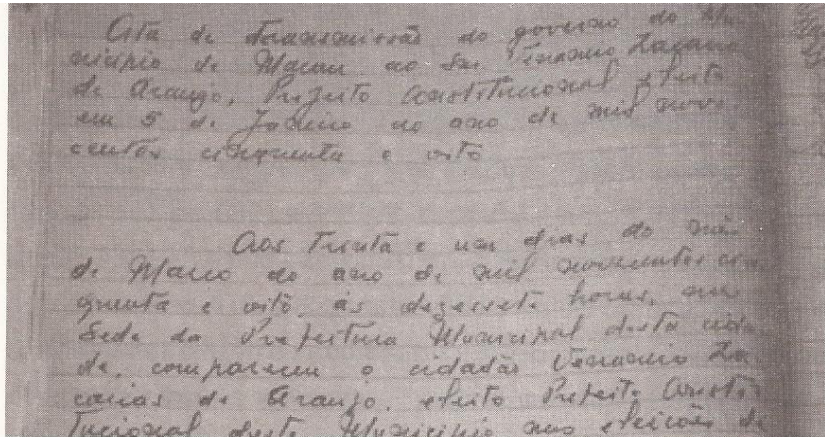 Ata de transmissão do governo do Mu-
nicipio de Macau ao Snr. Venancio Zacarias
de Araujo, Prefeito Constitucional eleito
em 5 de Janeiro no ano de mil nove
centos cinquenta e oito

Aos Trinta e um dias do mês
de Março do ano de mil novecentos cin
quenta e oito, ás dezessete horas, na
Sede da Prefeitura Municipal desta cida
de, compareceu o cidadão Venancio Za
carias de Araujo, eleito Prefeito Consti
tucional deste Municipio nas eleições de